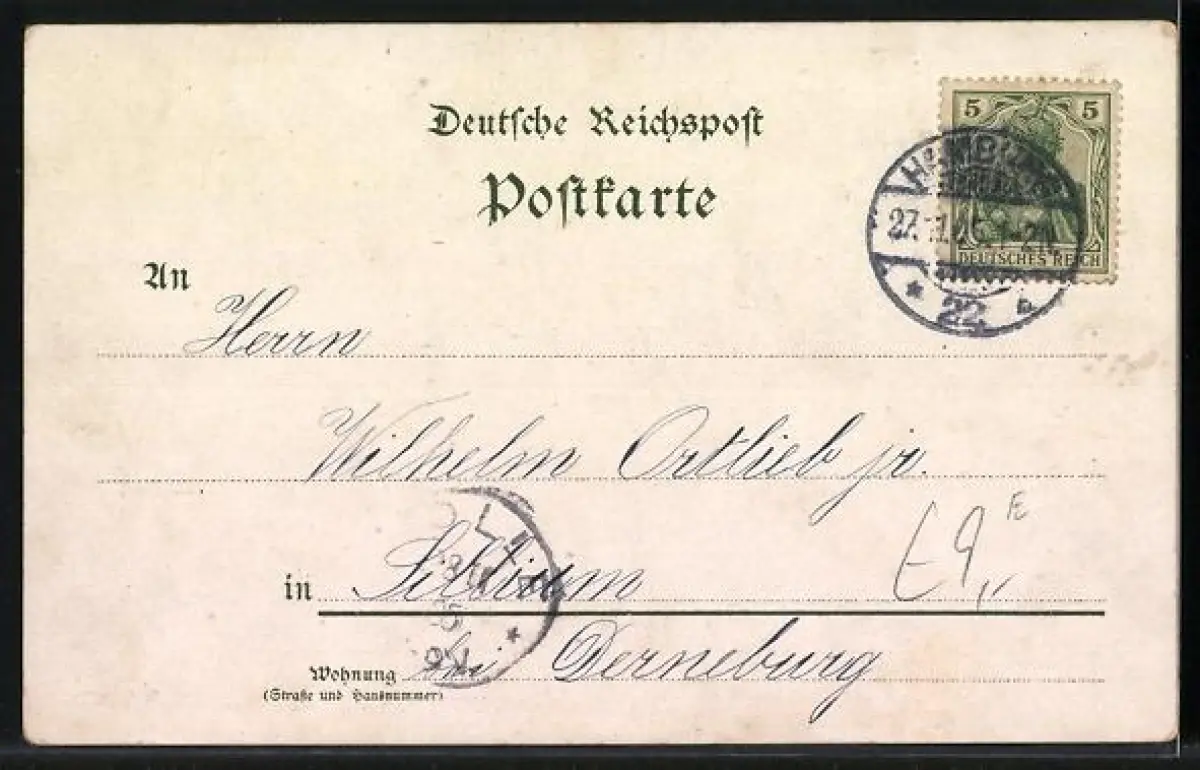 Deutsche Reichspost
Postkarte
5 5
DEUTSCHES REICH
HAMBURG
27.
* 22 *
An
Herrn
Wilhelm Ortlieb jr.
in
bei Derneburg
Wohnung
(Straße und Hausnummer)